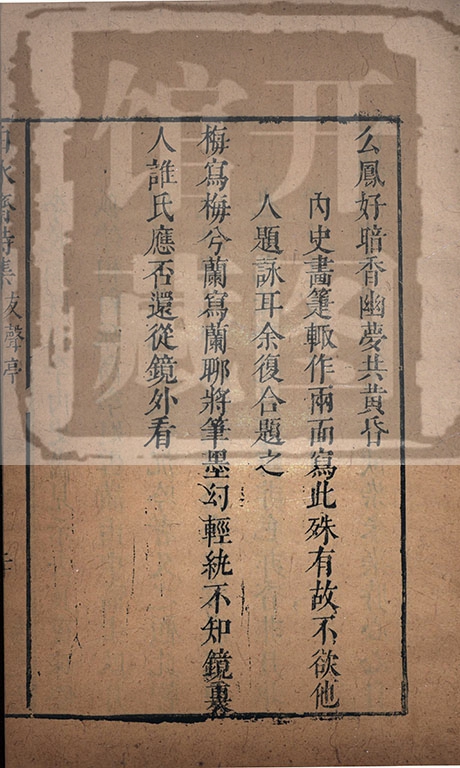 么鳳好暗香幽夢共黃昏
內史畵箑輙作兩面寫此殊有故不欲他
人題詠耳余復合題之
梅寫梅兮蘭寫蘭聊將筆墨幻輕紈不知鏡裏
人誰氏應否還從鏡外看
齋詩集 聲亭
开图
馆藏